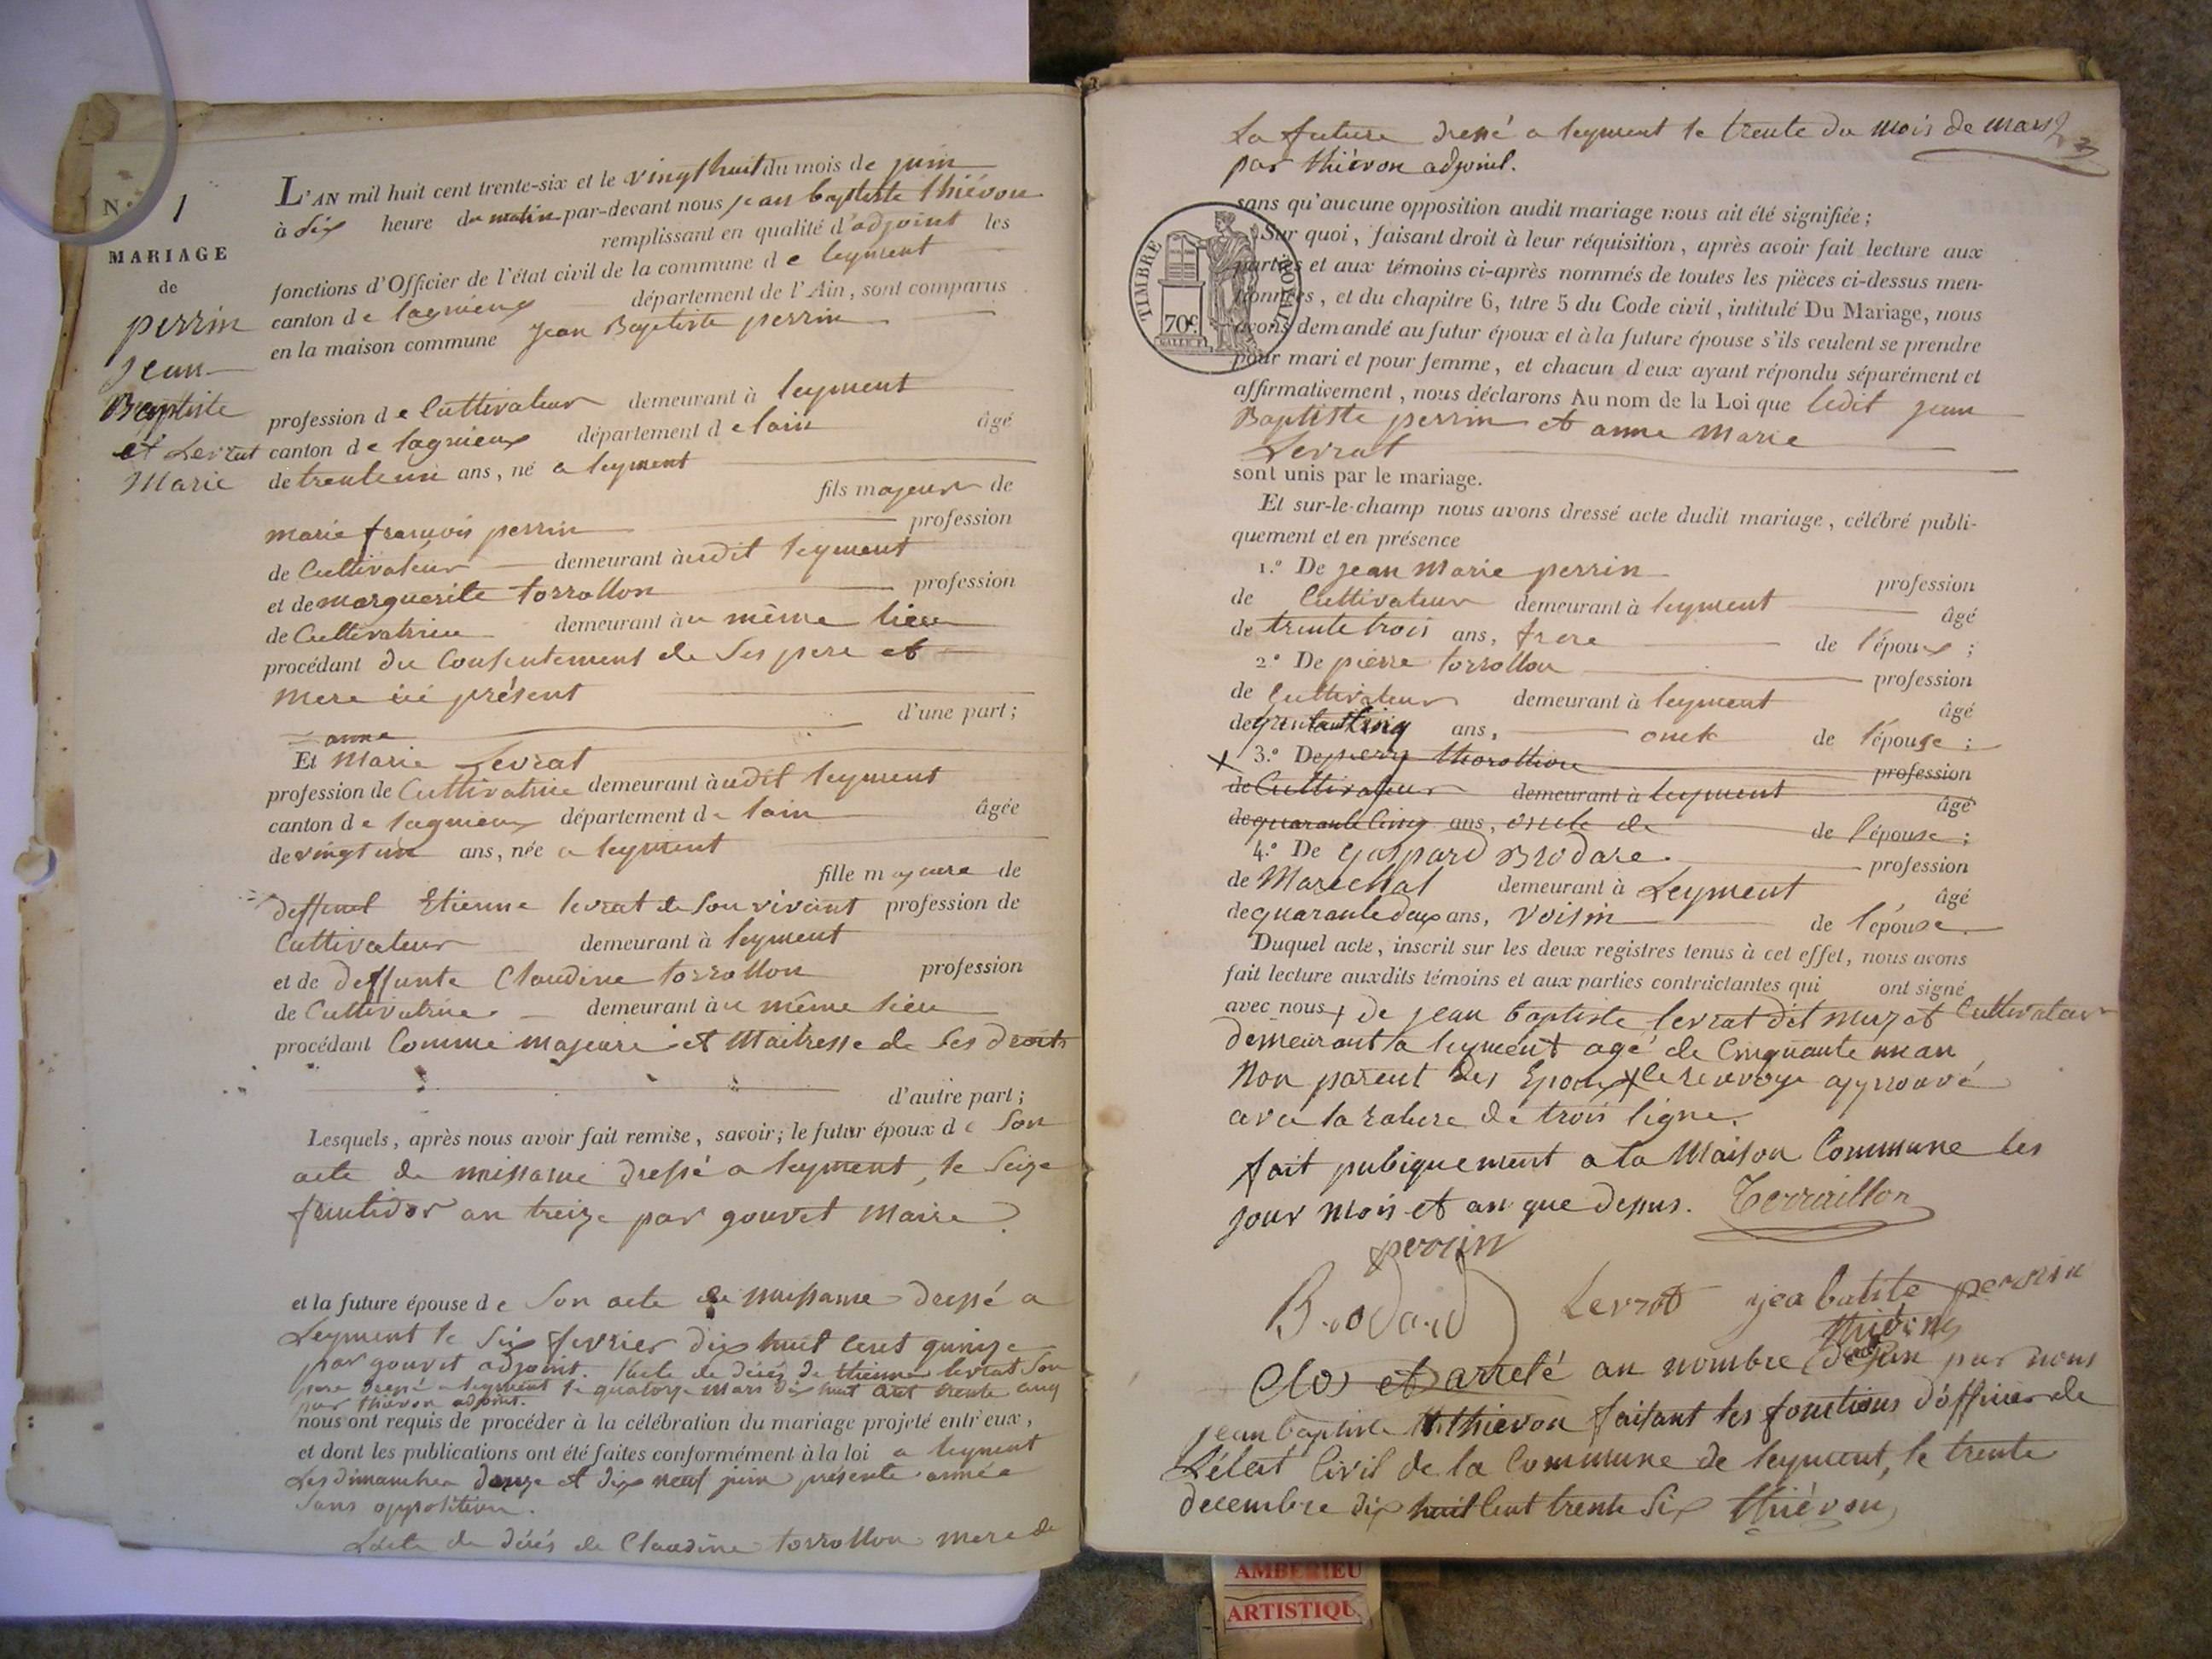 N.° 1
MARIAGE
de
perrin
jean
Baptiste
et Levrat
Marie
L'AN mil huit cent trente-six et le vingt huit du mois de juin
à Six heure du matin par-devant nous jean baptiste thiévon
remplissant en qualité d'adjoint les
fonctions d'Officier de l'état civil de la commune de leyment
canton de lagnieux département de l'Ain, sont comparus
en la maison commune jean Baptiste perrin
profession de Cultivateur demeurant à leyment
canton de lagnieux département de lain âgé
de trente un ans, né a leyment
fils majeur de
marie francois perrin profession
de Cultivateur demeurant à udit leyment
et de marguerite torrollon profession
de Cultivatrice demeurant à u même lieu
procédant du Consentement de Ses pere et
mere ici présent
d'une part;
anne
Et Marie Levrat
profession de Cultivatrice demeurant à udit leyment
canton de lagnieux département de lain âgée
de vingt un ans, née a leyment
fille majeure de
deffunt Etienne levrat de Son vivant profession de
Cultivateur demeurant à leyment
et de deffunte Claudine torrollon profession
de Cultivatrice demeurant à u même lieu
procédant Comme majeure et Maitresse de Ses droits
d'autre part;
Lesquels, après nous avoir fait remise, savoir; le futur époux de Son
acte de naissance dressé a leyment, le Seize
fructidor an treize par gouvet Maire
et la future épouse de Son acte de naissance dressé a
Leyment le Six fevrier dix huit cent quinze
par gouvet adjoint. l'acte de décés de thienne levrat Son
pere dressé a leyment le quatorze mars dix huit cent trente cinq
par thievon adjoint.
nous ont requis de procéder à la célébration du mariage projeté entr'eux,
et dont les publications ont été faites conformément à la loi a leyment
Les dimanches douze et dix neuf juin présente année
Sans opposition.
Lacte de décés de Claudine torrollon mere de
La future dressé a leyment le trente du mois de mars
par thiévon adjoint.
sans qu'aucune opposition audit mariage nous ait été signifiée;
Sur quoi, faisant droit à leur réquisition, après avoir fait lecture aux
parties et aux témoins ci-après nommés de toutes les pièces ci-dessus men-
tionnées, et du chapitre 6, titre 5 du Code civil, intitulé Du Mariage, nous
avons demandé au futur époux et à la future épouse s'ils veulent se prendre
pour mari et pour femme, et chacun d'eux ayant répondu séparément et
affirmativement, nous déclarons Au nom de la Loi que ledit jean
Baptiste perrin et anne Marie
Levrat
sont unis par le mariage.
TIMBRE ROYAL
70c.
Et sur-le-champ nous avons dressé acte dudit mariage, célébré publi-
quement et en présence
1.° De jean Marie perrin profession
de Cultivateur demeurant à leyment âgé
de trente trois ans, frere de l'époux;
2.° De pierre torrollon profession
de Cultivateur demeurant à leyment âgé
de ans, oncle de l'épouse;
x 3.° De pierre thorollion profession
de Cultivateur demeurant à leyment âgé
de quarante Cinq ans, oncle de de l'épouse;
4.° De Gaspard Brodare profession
de Marechal demeurant à Leyment âgé
de quarante deux ans, Voisin de l'épouse.
Duquel acte, inscrit sur les deux registres tenus à cet effet, nous avons
fait lecture auxdits témoins et aux parties contractantes qui ont signé
avec nous x de jean baptiste levrat dit muzat Cultivateur
demeurant a leyment agé de Cinquante un an
Non parent des Epoux x le renvoye approuvé
avec la rature de trois ligne.
fait pubiquement a la Maison Commune les
jour mois et an que dessus. Terraillon
perrin
Brodard Levrat jea batiste perrin
thiévon
Clos et arreté au nombre de un par nous
jean baptiste thievon faisant les fonctions d'officier de
L'état Civil de la Commune de leyment, le trente
decembre dix huit Cent trente Six thiévon
AMBERIEU
ARTISTIQU